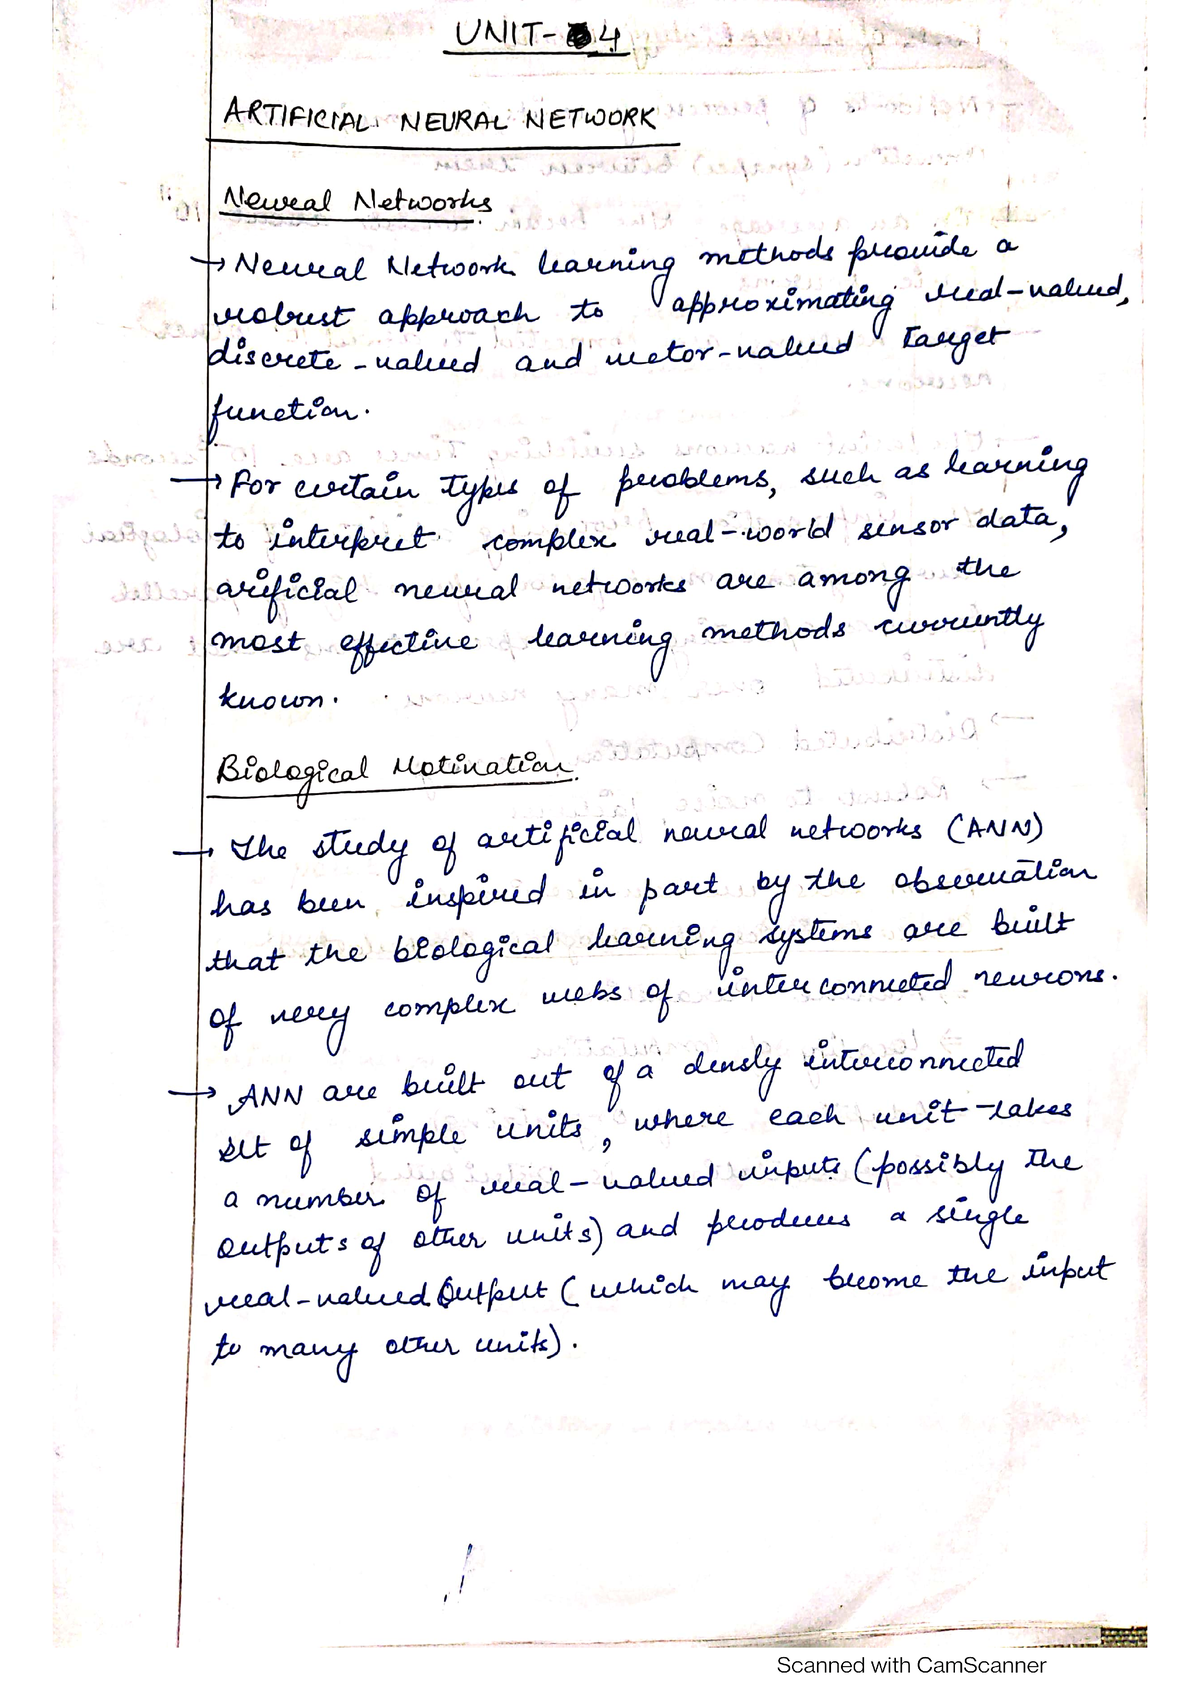 UNIT-4
ARTIFICIAL NEURAL NETWORK
Neural Networks
→ Neural Network learning methods provide a
robust approach to approximating real-valued,
discrete-valued and vector-valued target
function.
→ For certain types of problems, such as learning
to interpret complex real-world sensor data,
arificial neural networks are among the
most effective learning methods currently
known.
Biological Motivation
→ The study of artificial neural networks (ANN)
has been inspired in part by the observation
that the biological learning systems are built
of very complex webs of interconnected neurons.
→ ANN are built out of a densly interconnected
set of simple units, where each unit takes
a number of real-valued inputs (possibly the
outputs of other units) and produces a single
real-valued output (which may become the input
to many other units).
Scanned with CamScanner